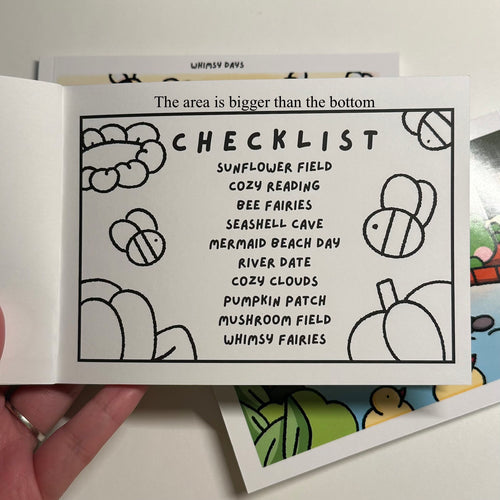 WHIMSY DAYS
The area is bigger than the bottom
CHECKLIST
SUNFLOWER FIELD
COZY READING
BEE FAIRIES
SEASHELL CAVE
MERMAID BEACH DAY
RIVER DATE
COZY CLOUDS
PUMPKIN PATCH
MUSHROOM FIELD
WHIMSY FAIRIES